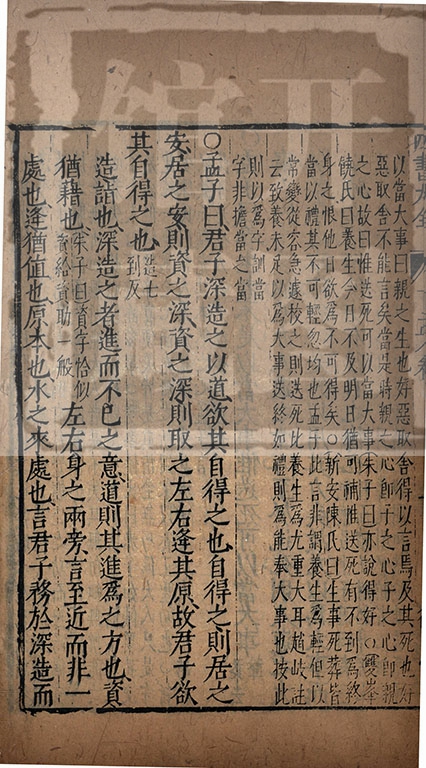 以當大事曰親之生也好惡取舍得以言焉及其死也好
惡取舍不能言矣當是時親之心卽子之心子之心卽親
之心故曰惟送死可以當大事朱子曰亦說得好○雙峯
饒氏曰養生今日不及明日猶可補惟送死有不到爲終
身之恨他日欲爲不可得矣○新安陳氏曰生事死葬皆
當以禮其不可輕忽均也孟子此言非謂養生爲輕但以
常變從容急遽校之則送死比養生爲尤重大耳趙岐註
云致養未足以爲大事送終如禮則爲能奉大事也按此
則以爲字訓當
字非擔當之當
○孟子曰君子深造之以道欲其自得之也自得之則居之
安居之安則資之深資之深則取之左右逢其原故君子欲
其自得之也造七到反
造詣也深造之者進而不已之意道則其進爲之方也資
猶藉也朱子曰資字恰似資給資助一般左右身之兩旁言至近而非一
處也逢猶值也原本也水之來處也言君子務於深造而